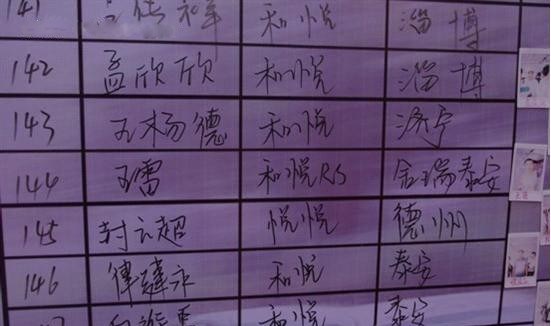 141 祥 和悦 淄博
142 孟欣欣 和悦 淄博
143 王杨德 和悦 济宁
144 王雷 和悦RS 金瑞泰安
145 封云超 悦悦 德州
146 律建永 和悦 泰安
和悦 泰安